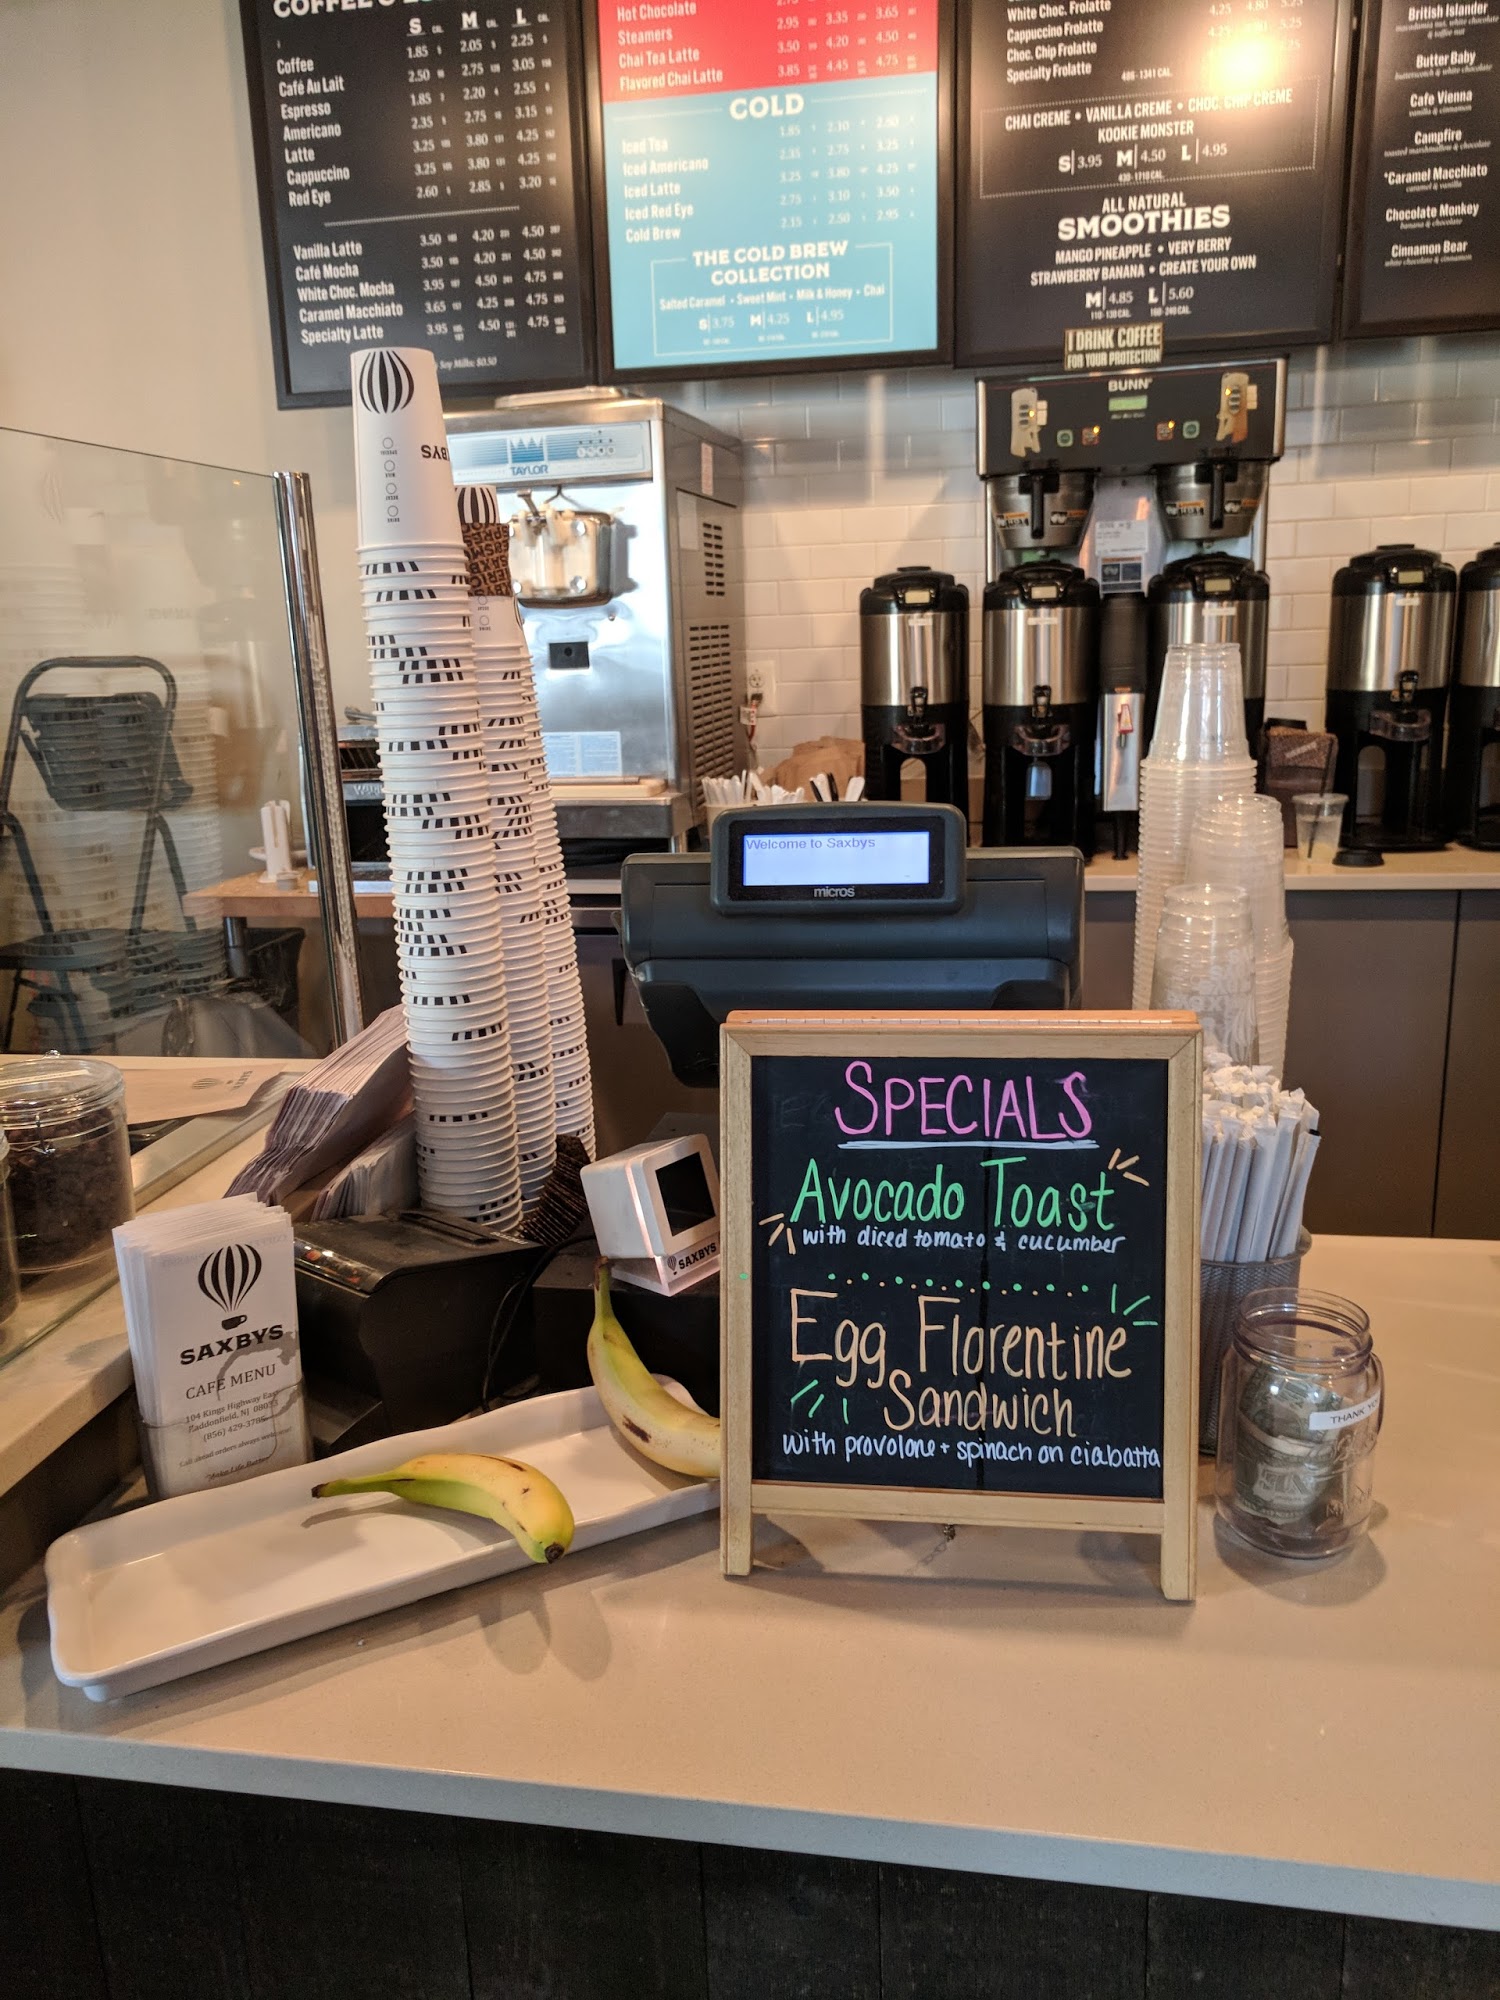 COFFEE &
S CAL. M CAL. L CAL.
Coffee 1.85 2.05 2.25
Café Au Lait 2.50 2.75 3.05
Espresso 1.85 2.20 2.55
Americano 2.35 2.75 3.15
Latte 3.25 3.80 4.25
Cappuccino 3.25 3.80 4.25
Red Eye 2.60 2.85 3.20
Vanilla Latte 3.50 4.20 4.50
Café Mocha 3.50 4.20 4.50
White Choc. Mocha 3.95 4.50 4.75
Caramel Macchiato 3.65 4.25 4.75
Specialty Latte 3.95 4.50 4.75
Soy Milk: $0.50
Hot Chocolate
Steamers 2.95 3.35 3.65
Chai Tea Latte 3.50 4.20 4.50
Flavored Chai Latte 3.85 4.45 4.75
COLD
Iced Tea 1.85 2.10 2.60
Iced Americano 2.35 2.75 3.25
Iced Latte 3.25 3.80 4.25
Iced Red Eye 2.75 3.10 3.50
Cold Brew 2.15 2.50 2.95
THE COLD BREW
COLLECTION
Salted Caramel • Sweet Mint • Milk & Honey • Chai
S 3.75 M 4.25 L 4.95
White Choc. Frolatte 4.25 4.80 5.25
Cappuccino Frolatte 4.25
Choc. Chip Frolatte
Specialty Frolatte
CHAI CREME • VANILLA CREME • CHOC. CHIP CREME
KOOKIE MONSTER
S 3.95 M 4.50 L 4.95
ALL NATURAL
SMOOTHIES
MANGO PINEAPPLE • VERY BERRY
STRAWBERRY BANANA • CREATE YOUR OWN
M 4.85 L 5.60
British Islander
Butter Baby
butterscotch & white chocolate
Cafe Vienna
vanilla & cinnamon
Campfire
toasted marshmallow & chocolate
*Caramel Macchiato
caramel & vanilla
Chocolate Monkey
banana & chocolate
Cinnamon Bear
white chocolate & cinnamon
I DRINK COFFEE
FOR YOUR PROTECTION
BUNN
TAYLOR
Welcome to Saxbys
micros
SAXBYS
SPECIALS
AVOCADO TOAST
with diced tomato & cucumber
Egg Florentine
Sandwich
with provolone + spinach on ciabatta
SAXBYS
CAFE MENU
104 Kings Highway East
Haddonfield, NJ 08033
(856) 429-3705
THANK YO